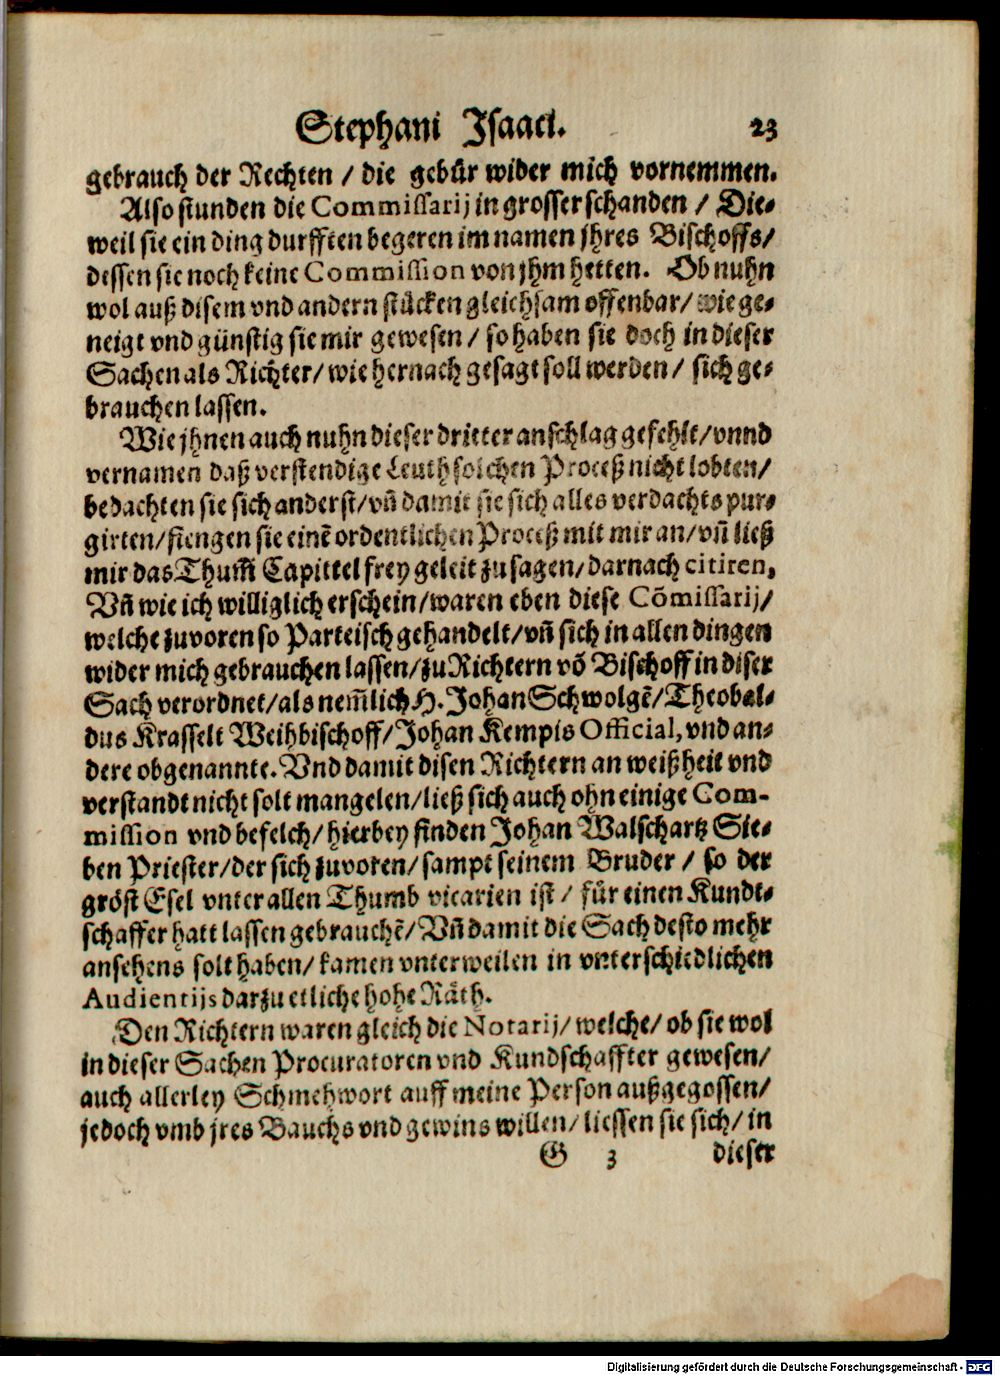 Stephani Isaaci. 23
gebrauch der Rechten / die gebür wider mich vornemmen.
Also stunden die Commissarij in grosser schanden / Die-
weil sie ein ding durfften begeren im namen jhres Bischoffs/
dessen sie noch keine Commission von jhm hetten. Ob nuhn
wol auß disem vnd andern stücken gleichsam offenbar/ wie ge-
neigt vnd günstig sie mir gewesen / so haben sie doch in dieser
Sachen als Richter/ wie hernach gesagt soll werden/ sich ge-
brauchen lassen.
Wie jhnen auch nuhn dieser dritter anschlag gefehlt/ vnnd
vernamen daß verstendige Leuth solchen Proceß nicht lobten/
bedachten sie sich anderst/ vñ damit sie sich alles verdachts pur-
girten/ fiengen sie einẽ ordentlichen Proceß mit mir an/ vñ ließ
mir das Thum̃ Capittel frey geleit zusagen/ darnach citiren,
Vñ wie ich williglich erschein/ waren eben diese Cõmissarij/
welche zuvoren so Parteisch gehandelt/ vñ sich in allen dingen
wider mich gebrauchen lassen/ zu Richtern võ Bischoff in diser
Sach verordnet/ als nem̃lich H. Johan Schwolgẽ/ Theobal-
dus Krasselt Weihbischoff/ Johan Kempis Official, vnd an-
dere obgenannte. Vnd damit disen Richtern an weißheit vnd
verstandt nicht solt mangelen/ ließ sich auch ohn einige Com-
mission vnd befelch/ hierbey finden Johan Walschartz Sie-
ben Priester/ der sich zuvoren/ sampt seinem Bruder / so der
gröst Esel vnter allen Thumb vicarien ist / für einen Kundt-
schaffer hatt lassen gebrauchẽ/ Vñ damit die Sach desto mehr
ansehens solt haben/ kamen vnterweilen in vnterschiedlichen
Audientijs darzu etliche hohe Räth.
Den Richtern waren gleich die Notarij/ welche/ ob sie wol
in dieser Sachen Procuratoren vnd Kundschaffter gewesen/
auch allerley Schmehwort auff meine Person außgegossen/
jedoch vmb jres Bauchs vnd gewins willen/ liessen sie sich/ in
G 3 dieser
Digitalisierung gefördert durch die Deutsche Forschungsgemeinschaft - DFG